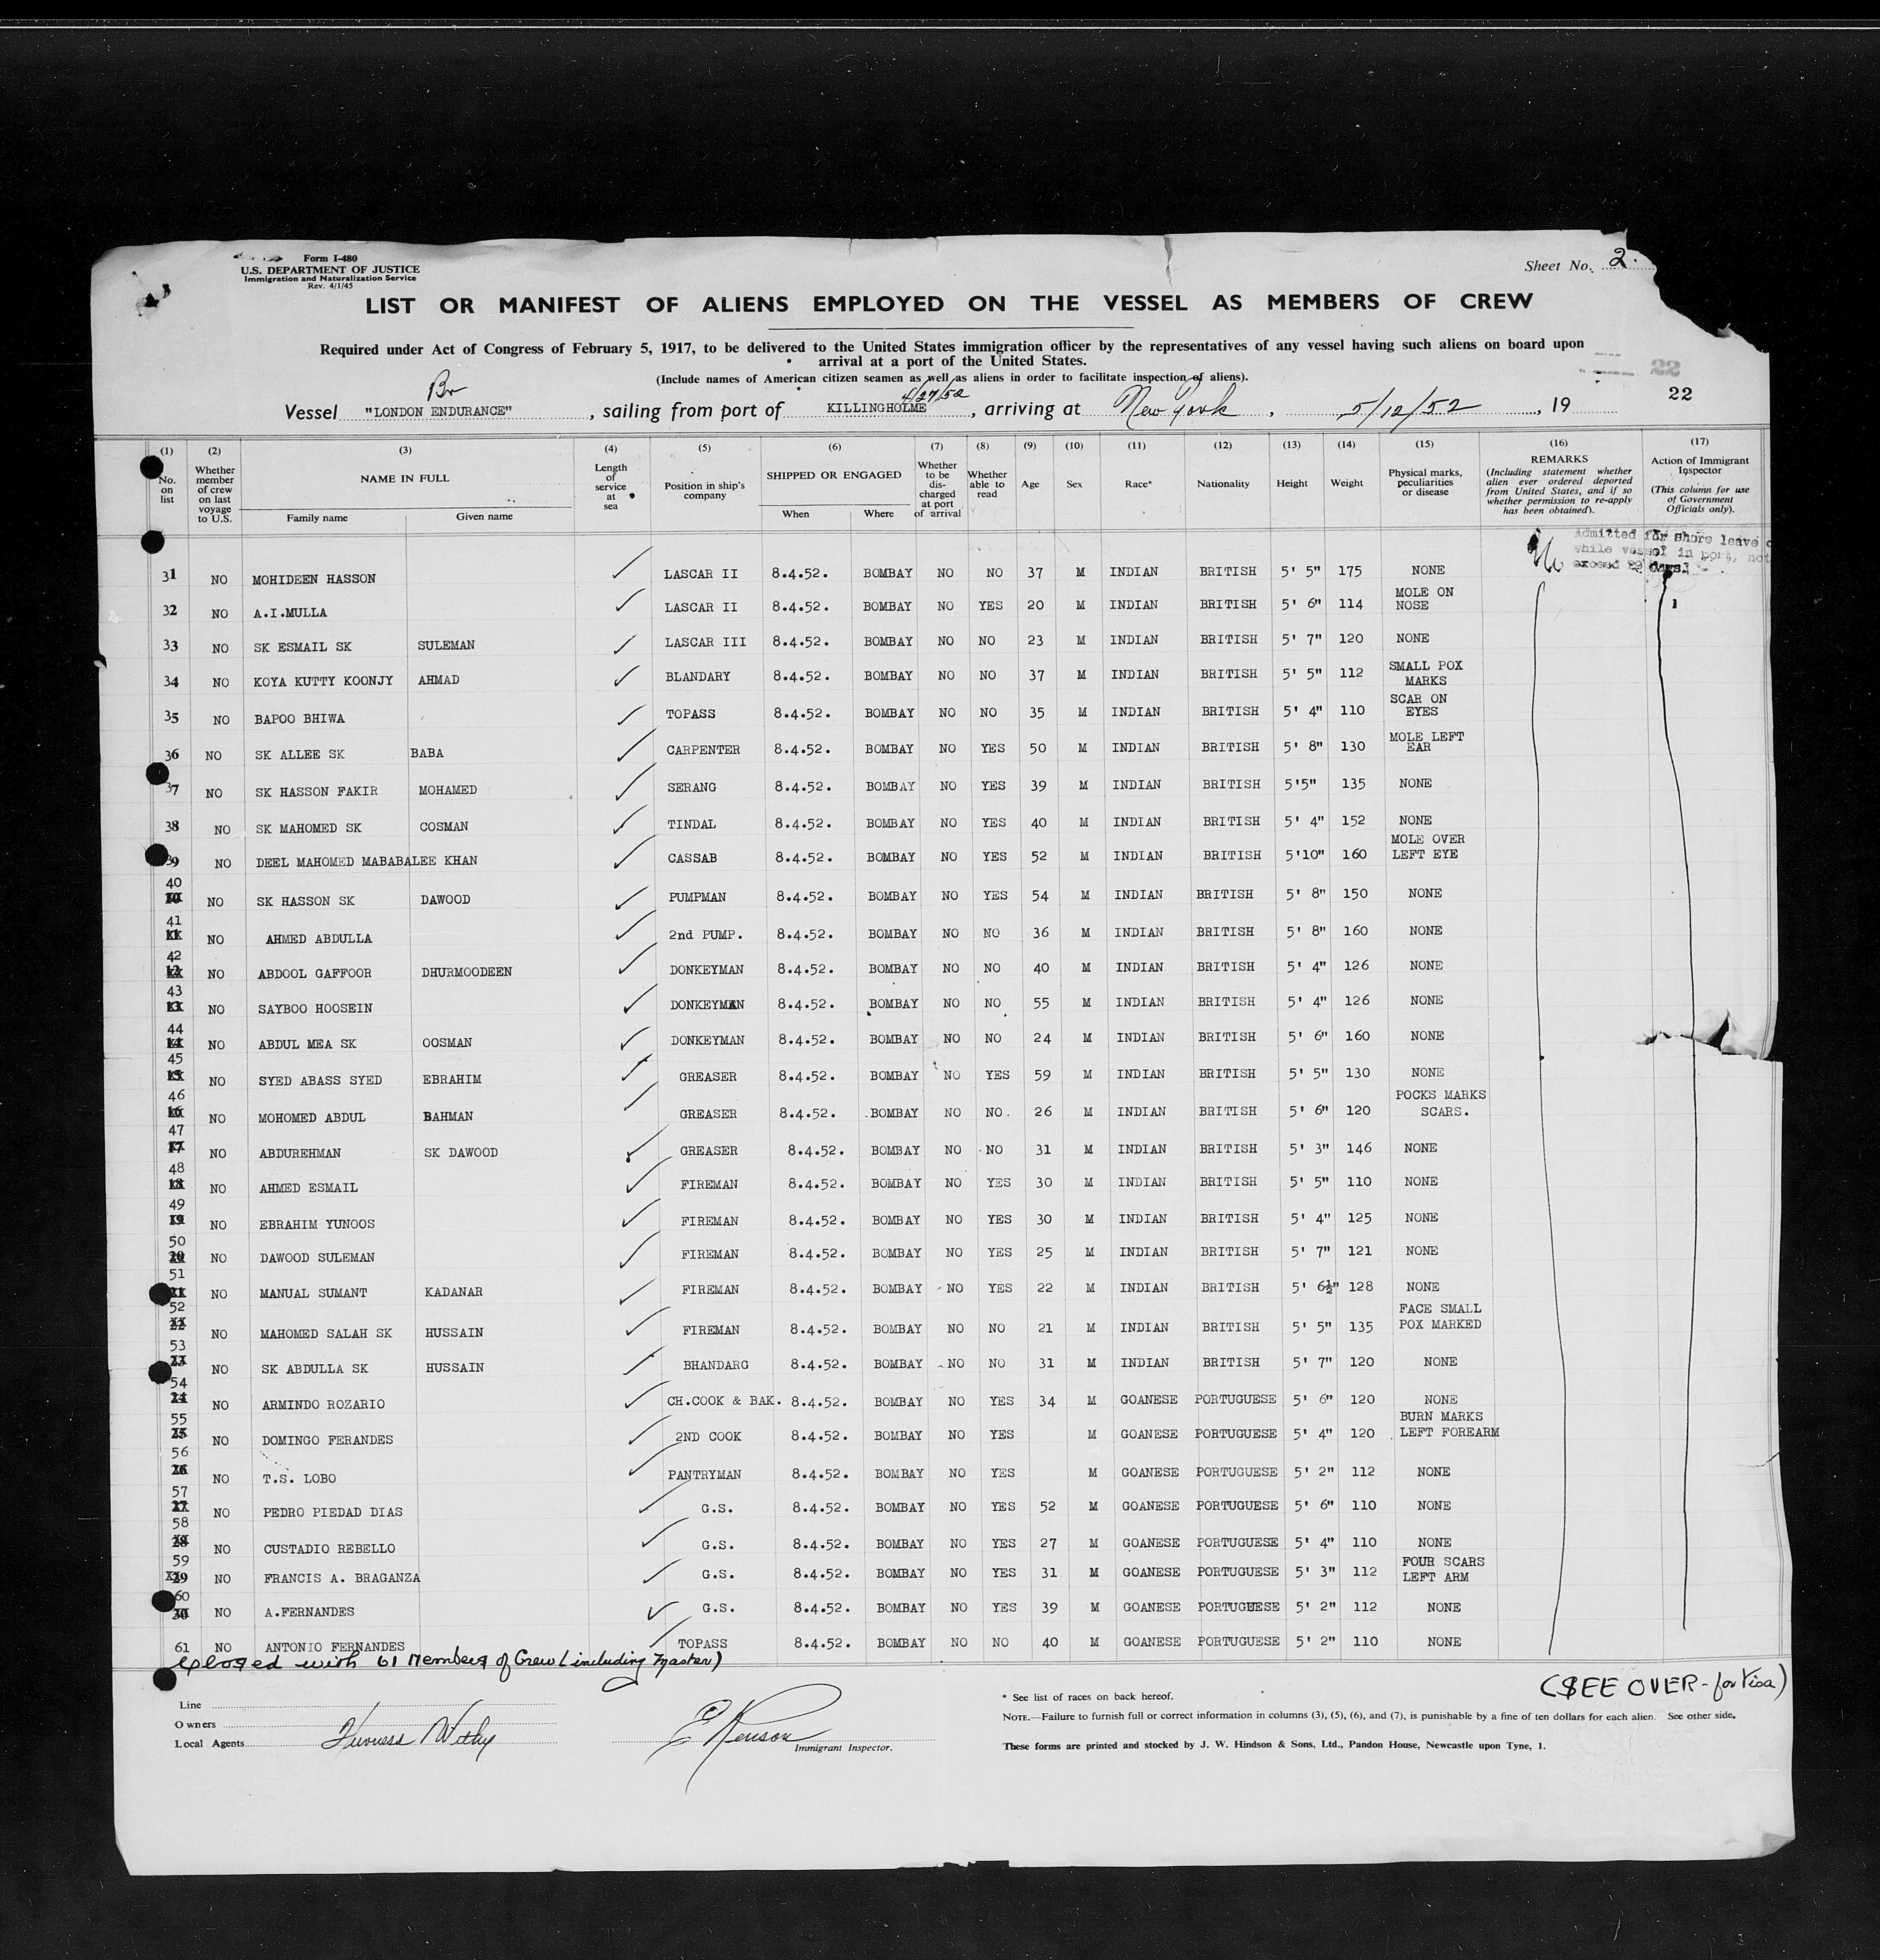 Form I-480
U.S. DEPARTMENT OF JUSTICE
Immigration and Naturalization Service
Rev. 4/1/45
Sheet No. 2.
LIST OR MANIFEST OF ALIENS EMPLOYED ON THE VESSEL AS MEMBERS OF CREW
Required under Act of Congress of February 5, 1917, to be delivered to the United States immigration officer by the representatives of any vessel having such aliens on board upon
arrival at a port of the United States.
(Include names of American citizen seamen as well as aliens in order to facilitate inspection of aliens).
22
Br 4/27/52
Vessel "LONDON ENDURANCE", sailing from port of KILLINGHOLME, arriving at New York, 5/12/52, 19
22
(1) No. on list (2) Whether member of crew on last voyage to U.S. (3) NAME IN FULL Family name Given name (4) Length of service at sea (5) Position in ship's company (6) SHIPPED OR ENGAGED When Where (7) Whether to be discharged at port of arrival (8) Whether able to read (9) Age (10) Sex (11) Race* (12) Nationality (13) Height (14) Weight (15) Physical marks, peculiarities or disease (16) REMARKS (Including statement whether alien ever ordered deported from United States, and if so whether permission to re-apply has been obtained). (17) Action of Immigrant Inspector (This column for use of Government Officials only).
Admitted for shore leave
while vessel in port, not
exceed 29 days.
31 NO MOHIDEEN HASSON LASCAR II 8.4.52. BOMBAY NO NO 37 M INDIAN BRITISH 5' 5" 175 NONE
32 NO A.I.MULLA LASCAR II 8.4.52. BOMBAY NO YES 20 M INDIAN BRITISH 5' 6" 114 MOLE ON NOSE
33 NO SK ESMAIL SK SULEMAN LASCAR III 8.4.52. BOMBAY NO NO 23 M INDIAN BRITISH 5' 7" 120 NONE
34 NO KOYA KUTTY KOONJY AHMAD BLANDARY 8.4.52. BOMBAY NO NO 37 M INDIAN BRITISH 5' 5" 112 SMALL POX MARKS
35 NO BAPOO BHIWA TOPASS 8.4.52. BOMBAY NO NO 35 M INDIAN BRITISH 5' 4" 110 SCAR ON EYES
36 NO SK ALLEE SK BABA CARPENTER 8.4.52. BOMBAY NO YES 50 M INDIAN BRITISH 5' 8" 130 MOLE LEFT EAR
37 NO SK HASSON FAKIR MOHAMED SERANG 8.4.52. BOMBAY NO YES 39 M INDIAN BRITISH 5'5" 135 NONE
38 NO SK MAHOMED SK COSMAN TINDAL 8.4.52. BOMBAY NO YES 40 M INDIAN BRITISH 5' 4" 152 NONE
39 NO DEEL MAHOMED MABABALEE KHAN CASSAB 8.4.52. BOMBAY NO YES 52 M INDIAN BRITISH 5'10" 160 MOLE OVER LEFT EYE
40 NO SK HASSON SK DAWOOD PUMPMAN 8.4.52. BOMBAY NO YES 54 M INDIAN BRITISH 5' 8" 150 NONE
41 NO AHMED ABDULLA 2nd PUMP. 8.4.52. BOMBAY NO NO 36 M INDIAN BRITISH 5' 8" 160 NONE
42 NO ABDOOL GAFFOOR DHURMOODEEN DONKEYMAN 8.4.52. BOMBAY NO NO 40 M INDIAN BRITISH 5' 4" 126 NONE
43 NO SAYBOO HOOSEIN DONKEYMAN 8.4.52. BOMBAY NO NO 55 M INDIAN BRITISH 5' 4" 126 NONE
44 NO ABDUL MEA SK OOSMAN DONKEYMAN 8.4.52. BOMBAY NO NO 24 M INDIAN BRITISH 5' 6" 160 NONE
45 NO SYED ABASS SYED EBRAHIM GREASER 8.4.52. BOMBAY NO YES 59 M INDIAN BRITISH 5' 5" 130 NONE
46 NO MOHOMED ABDUL BAHMAN GREASER 8.4.52. BOMBAY NO NO. 26 M INDIAN BRITISH 5' 6" 120 POCKS MARKS SCARS.
47 NO ABDUREHMAN SK DAWOOD GREASER 8.4.52. BOMBAY NO NO 31 M INDIAN BRITISH 5' 3" 146 NONE
48 NO AHMED ESMAIL FIREMAN 8.4.52. BOMBAY NO YES 30 M INDIAN BRITISH 5' 5" 110 NONE
49 NO EBRAHIM YUNOOS FIREMAN 8.4.52. BOMBAY NO YES 30 M INDIAN BRITISH 5' 4" 125 NONE
50 NO DAWOOD SULEMAN FIREMAN 8.4.52. BOMBAY NO YES 25 M INDIAN BRITISH 5' 7" 121 NONE
51 NO MANUAL SUMANT KADANAR FIREMAN 8.4.52. BOMBAY NO YES 22 M INDIAN BRITISH 5' 6½" 128 NONE
52 NO MAHOMED SALAH SK HUSSAIN FIREMAN 8.4.52. BOMBAY NO NO 21 M INDIAN BRITISH 5' 5" 135 FACE SMALL POX MARKED
53 NO SK ABDULLA SK HUSSAIN BHANDARG 8.4.52. BOMBAY NO NO 31 M INDIAN BRITISH 5' 7" 120 NONE
54 NO ARMINDO ROZARIO CH.COOK & BAK. 8.4.52. BOMBAY NO YES 34 M GOANESE PORTUGUESE 5' 6" 120 NONE
55 NO DOMINGO FERANDES 2ND COOK 8.4.52. BOMBAY NO YES M GOANESE PORTUGUESE 5' 4" 120 BURN MARKS LEFT FOREARM
56 NO T.S. LOBO PANTRYMAN 8.4.52. BOMBAY NO YES M GOANESE PORTUGUESE 5' 2" 112 NONE
57 NO PEDRO PIEDAD DIAS G.S. 8.4.52. BOMBAY NO YES 52 M GOANESE PORTUGUESE 5' 6" 110 NONE
58 NO CUSTADIO REBELLO G.S. 8.4.52. BOMBAY NO YES 27 M GOANESE PORTUGUESE 5' 4" 110 NONE
59 NO FRANCIS A. BRAGANZA G.S. 8.4.52. BOMBAY NO YES 31 M GOANESE PORTUGUESE 5' 3" 112 FOUR SCARS LEFT ARM
60 NO A.FERNANDES G.S. 8.4.52. BOMBAY NO YES 39 M GOANESE PORTUGUESE 5' 2" 112 NONE
61 NO ANTONIO FERNANDES TOPASS 8.4.52. BOMBAY NO NO 40 M GOANESE PORTUGUESE 5' 2" 110 NONE
Closed with 61 Members of Crew (including Master)
(SEE OVER - for Visa)
Line
Owners
Local Agents Furness Withy
Immigrant Inspector.
* See list of races on back hereof.
NOTE.—Failure to furnish full or correct information in columns (3), (5), (6), and (7), is punishable by a fine of ten dollars for each alien. See other side.
These forms are printed and stocked by J. W. Hindson & Sons, Ltd., Pandon House, Newcastle upon Tyne, 1.